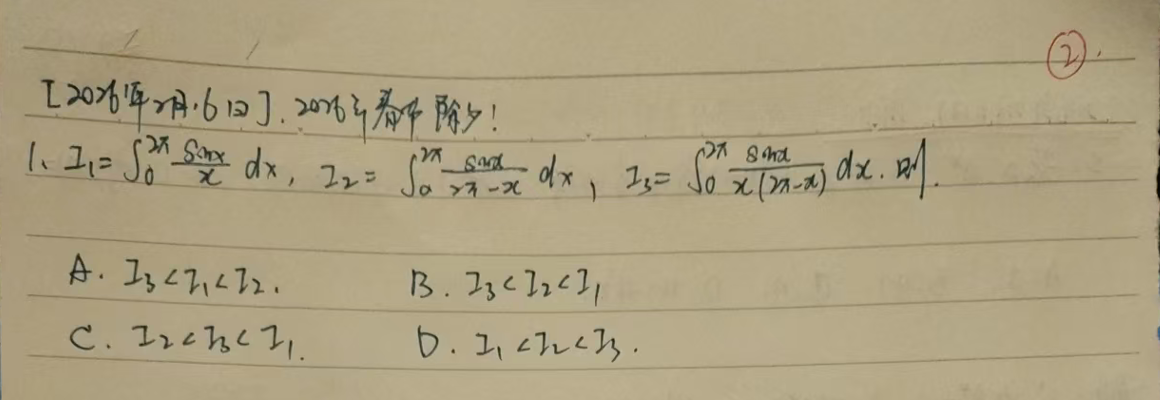 ②.
[2026年2月.6日]. 2026年春节除夕!
1、I₁=∫₀^{2π} sinx/x dx, I₂=∫₀^{2π} sinx/(2π-x) dx, I₃=∫₀^{2π} sinx/(x(2π-x)) dx. 则.
A. I₃<I₁<I₂. B. I₃<I₂<I₁
C. I₂<I₃<I₁. D. I₁<I₂<I₃.